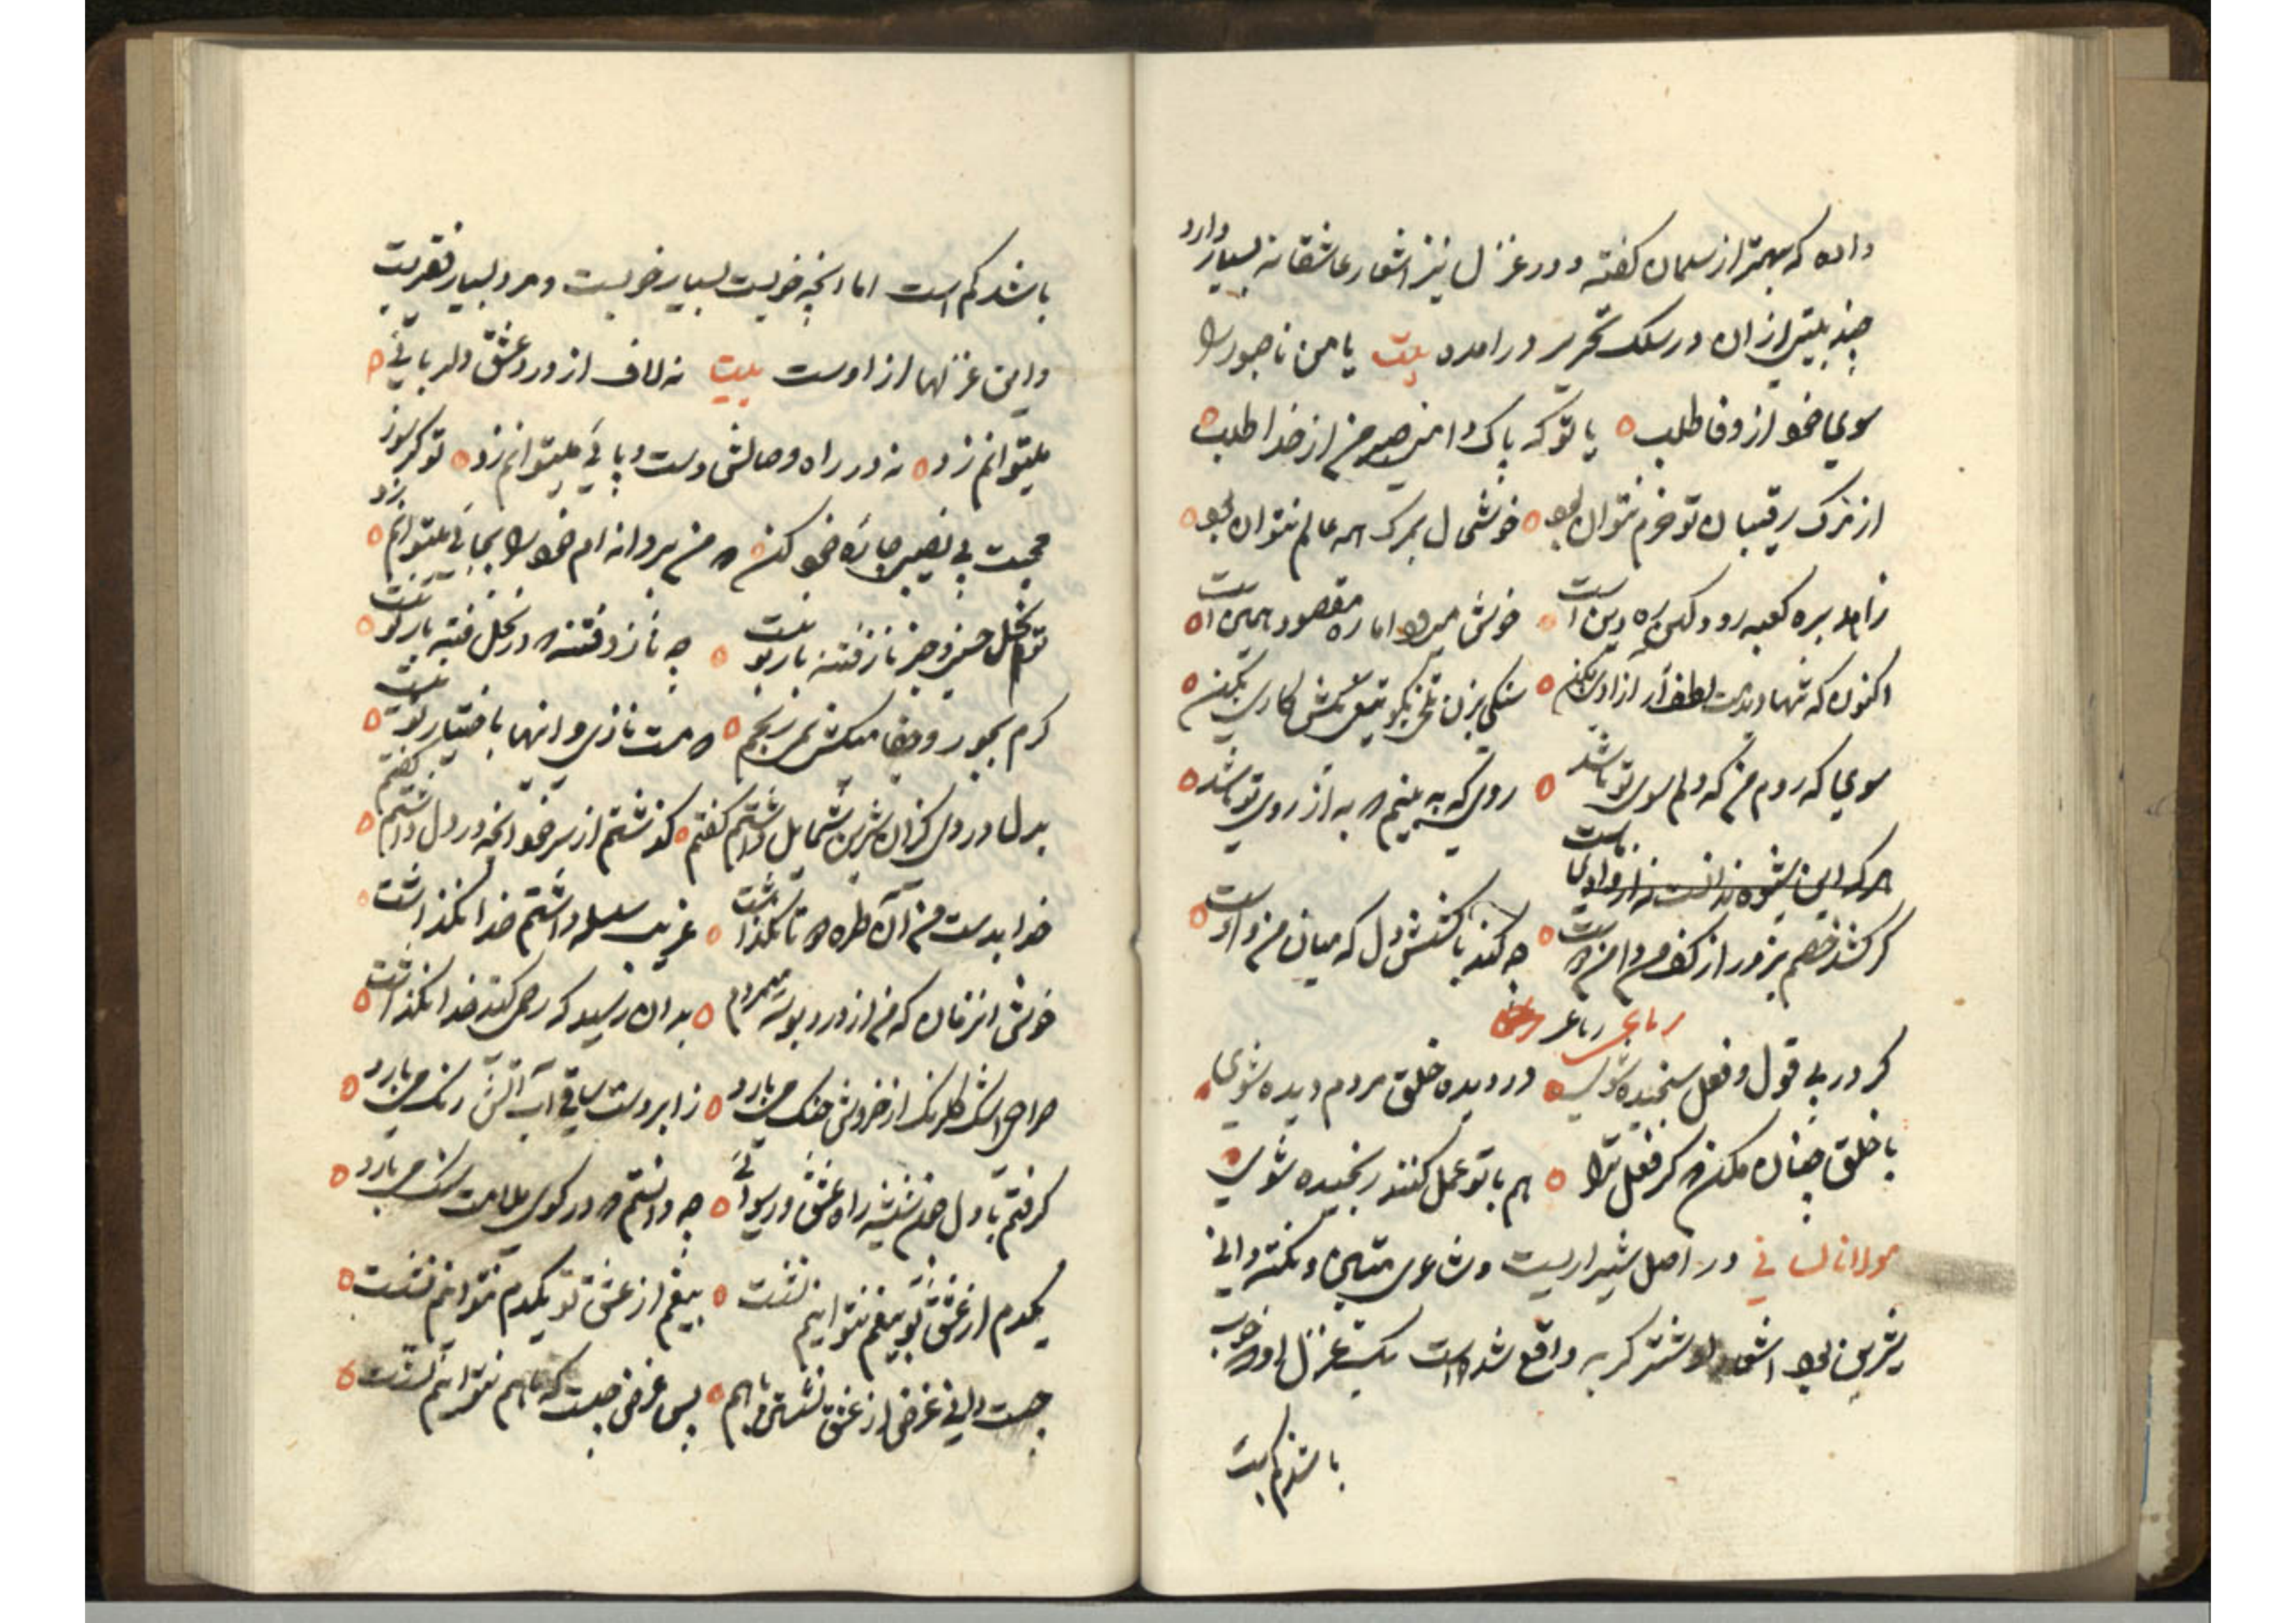 داده که بهتر از سلمان کفته و در غزل نیز اشعار عاشقانه بسیار دارد
چند بیتی از ان در سلک تحریر در امده بیت یا من ناصبور را
سوی خود از وفا طلب یا تو که پاک دامنی صبر من از خدا طلب
از ترک رقیبان تو خرم نتوان بود خوشحال بمرک همه عالم نتوان بود
زاهد بره کعبه رود کین ره دین است خوش میرود اما ره مقصود نه این است
اکنون که تنها دیدمت لطف ار نه ازاری بکن سنکی بزن تلخی بکو تیغی بکش کاری بکن
سوی که روم من که دلم سوی تو باشد روی که به بینم که به از روی تو باشد
هرکه این شیوه ندانست نه از وادی ماست
کر کشد خصم بزور از کف من دامن دوست چه کند با کشش دل که میان من و اوست
رباعی رباعی
کر در پی قول و فعل سنجیده شوی در دیده خلق مردم دیده شوی
با خلق چنان مکن که کر فعل ترا هم با تو عمل کنند رنجیده شوی
مولانا لسانی در اصل شیرازیست و شاعری متین و نکته دانی
شیرین بود اشعار او شتر کربه واقع شده است یکبیت غزل او که خوب
باشد کم است
باشد کم است اما انچه خوبست بسیار خوبست و مرد بسیار فقیریست
و این غزلها از اوست بیت نه لاف از درد عشق دلربایی
میتوانم زد نه در راه وصالش دست و پایی میتوانم زد تو کر سوز
محبت بی نصیبی چاره خود کن که من پروانه ام خود را بجایی میتوانم زد
تو نخل حسنی و جز ناز و فتنه بار تو نیست چه ناز و فتنه که در نخل فتنه بار تو نیست
کرم بجور و جفا میکشی نمیرنجم که مست نازی و اینها باختیار تو نیست
بدل دردی کزان شیرین شمایل داشتم کفتم کذشتم از سر خود انچه در دل داشتم کفتم
خدا بدست من آن طره دوتا نکذاشت غریب سلسله داشتم خدا نکذاشت
خوش انزمان که من از درد بوسه میمردم بدان رسید که رحمی کند خدا نکذاشت
صراحی اشک کلرنک از خروش چنک میبارد ز ابر دست ساقی آب آتش رنک میبارد
کرفتم با دل چون شیشه راه عشق و رسوائی چه دانستم که در کوی ملامت سنک میبارد
یکدم از عشق تو بیغم نتوانیم نشست بیغم از عشق تو یکدم نتوانیم نشست
چیست دانی غرض از عشق نشستن باهم پس غرض چیست که باهم نتوانیم نشست